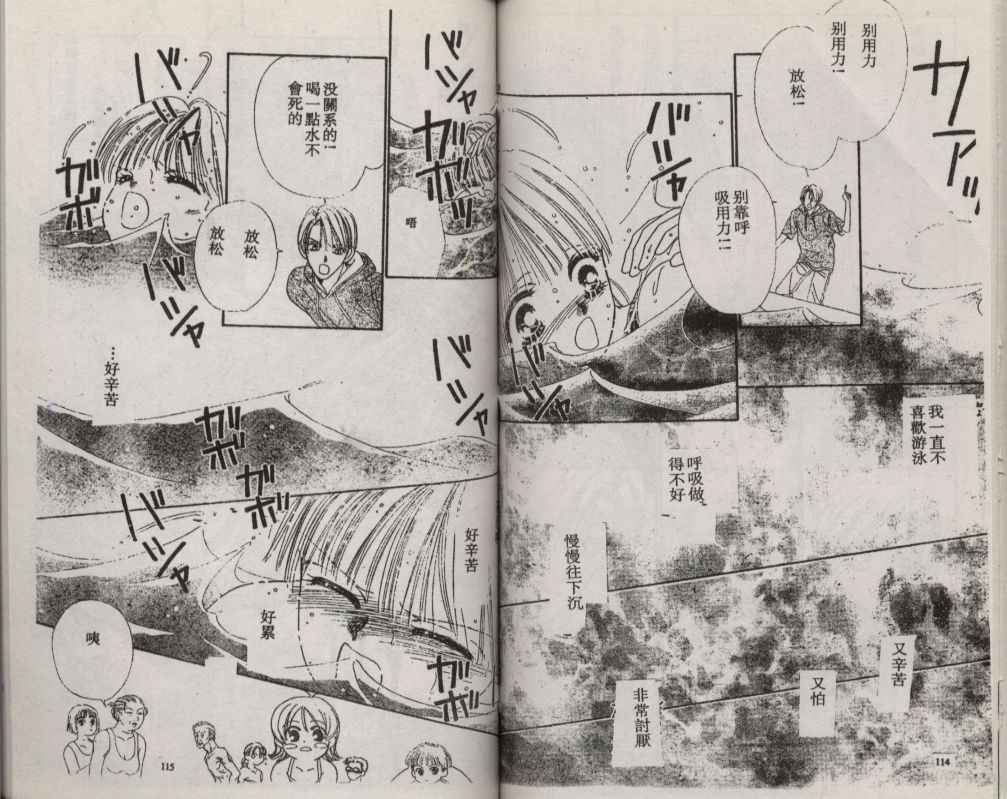 カァッ
別用力
別用力!
放松!
別靠呼
吸用力!!
バシャ
バシャ
我一直不
喜歡游泳
呼吸做
得不好
慢慢往下沉
又辛苦
又怕
非常討厭
114
バシャ
ガボガボ
唔
没關系的!
喝一點水不
會死的
放松
放松
バシャ
ガボガボ
バシャ
バシャ
…好辛苦
ガボ
ガボ
好辛苦
バシャ
好累
ガボ
咦
115